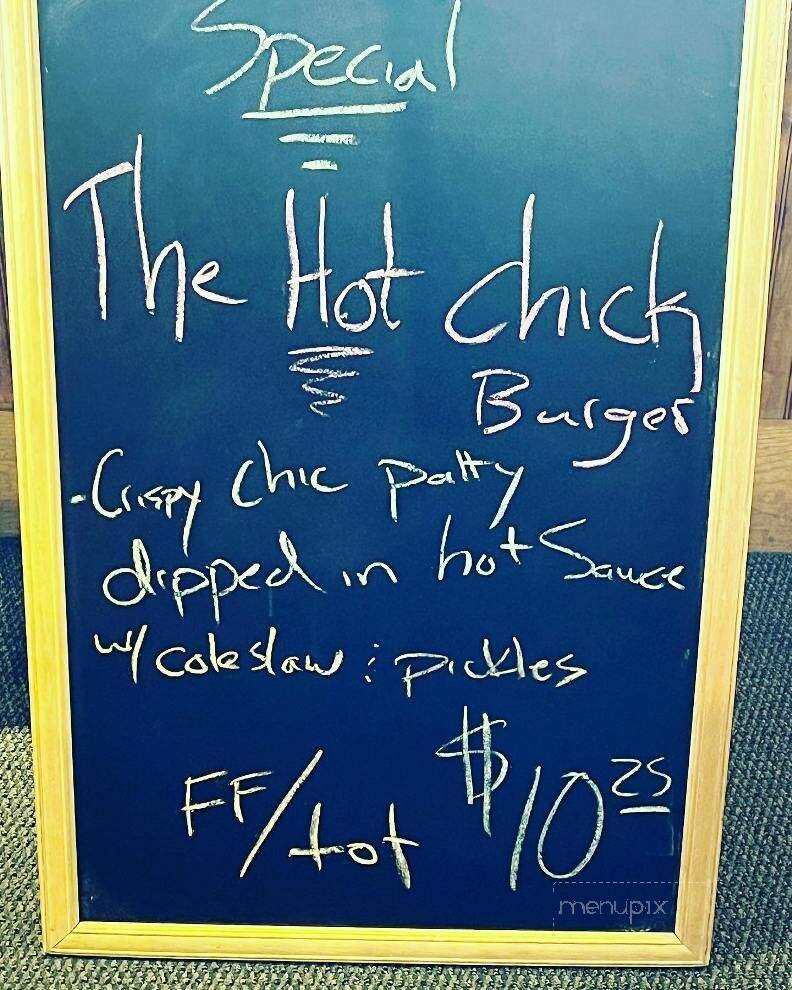 Special
The Hot Chick
Burger
-Crispy Chic patty
dipped in hot Sauce
w/ coleslaw : pickles
FF/tot $10 25
menupix